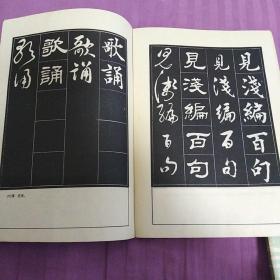 見淺編百句
見淺編百句
見淺編百句
見淺編百句
歌誦
歌誦
歌誦
歌誦